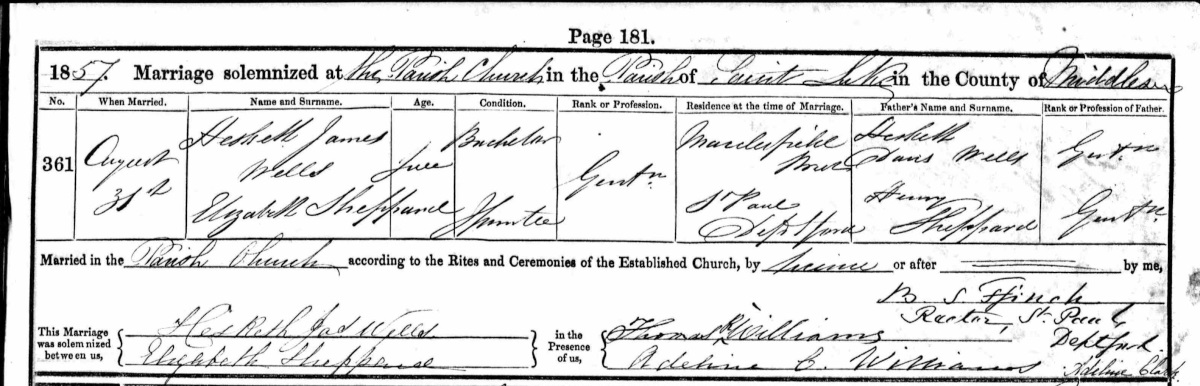 Page 181.
1857. Marriage solemnized at the Parish Church in the Parish of Saint Luke in the County of Middlesex
No. When Married. Name and Surname. Age. Condition. Rank or Profession. Residence at the time of Marriage. Father's Name and Surname. Rank or Profession of Father.
361 August 31st Hesketh James Wells full Bachelor Gentn Macclesfield Street Hesketh Davis Wells Gentn
Elizabeth Sheppard Spinster St Paul Deptford Henry Sheppard Gentn
Married in the Parish Church according to the Rites and Ceremonies of the Established Church, by licence or after by me,
B S Ffinch
Rector, St. Paul,
Deptford.
This Marriage was solemnized between us, { Hesketh Jas Wells
Elizabeth Sheppard } in the Presence of us, { Thomas R Williams
Adeline C. Williams
Adeline Clark